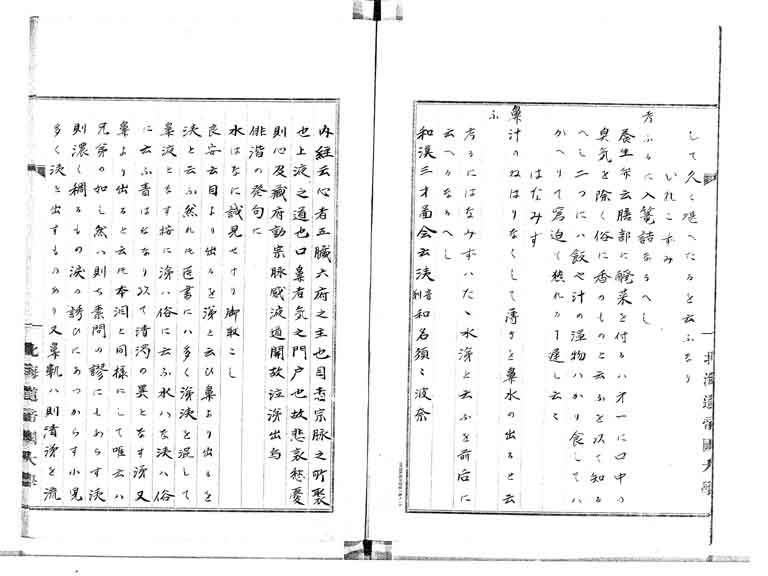 して久く堪へたるを云ふなり
いれこずみ
考ふるに入籠詰なるへし
養生弁云膳部に醃菜を付るハ才一に口中の
臭気を除く俗に香のものと云ふを以て知る
へし二つにハ飯や汁の湿物ハかり食してハ
かへりて窩迫て熟れる事遅し云々
はなみす
鼻汁のねはりなくして薄きを鼻水の出るせ云
ふ
考るにはなみずハたゝ水洟と云ふを前后に
云へるなるへし
和漢三才圖会云洟 音剃 和名須々波奈
内経云心者五臓六府之主也目者宗脉之所聚
也上液之道也口鼻者気之門戸也故悲哀愁憂
則心及蔵府動宗脉感液道開故泣洟出焉
俳諧の発句に
水はなに誠見せけり御取こし
良安云目より出るを涕と云ひ鼻より出るを
洟と云ふ然れ𪜈医書にハ多く涕洟を混して
鼻液となす按に涕ハ俗に云ふ水ハな洟ハ俗
に云ふ青はななり以て清濁の異となす涕又
鼻より出ると云𪜈本泪と同様にして唯云ハ
兄弟の如し然ハ則ち素問の謬にもあらす洟
則濃く稠るもの涙の誘ひにあつからす小児
多く洟を出すものあり又鼻鼽ハ則清涕を流
北海道帝国大学
北海道帝国大学